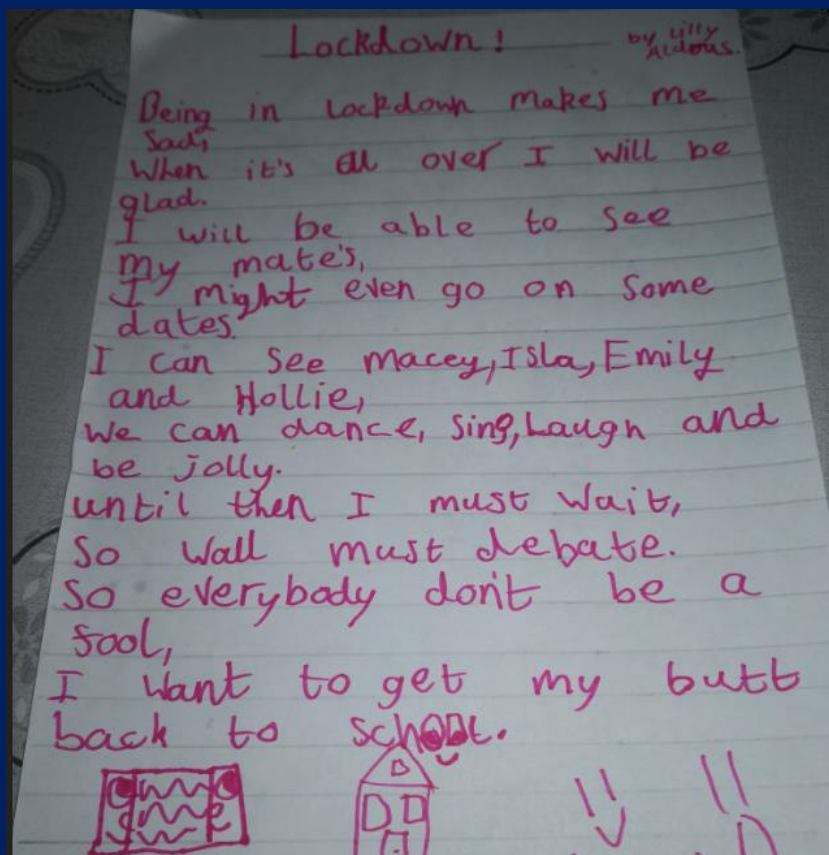 Lockdown!
by Lilly
Aldous.
Being in Lockdown makes me
sad,
When it's all over I will be
glad.
I will be able to see
my mate's,
I might even go on some
dates.
I can see Macey, Isla, Emily
and Hollie,
We can dance, sing, Laugh and
be jolly.
until then I must wait,
So Wall must debate.
So everybody don't be a
fool,
I want to get my butt
back to school.